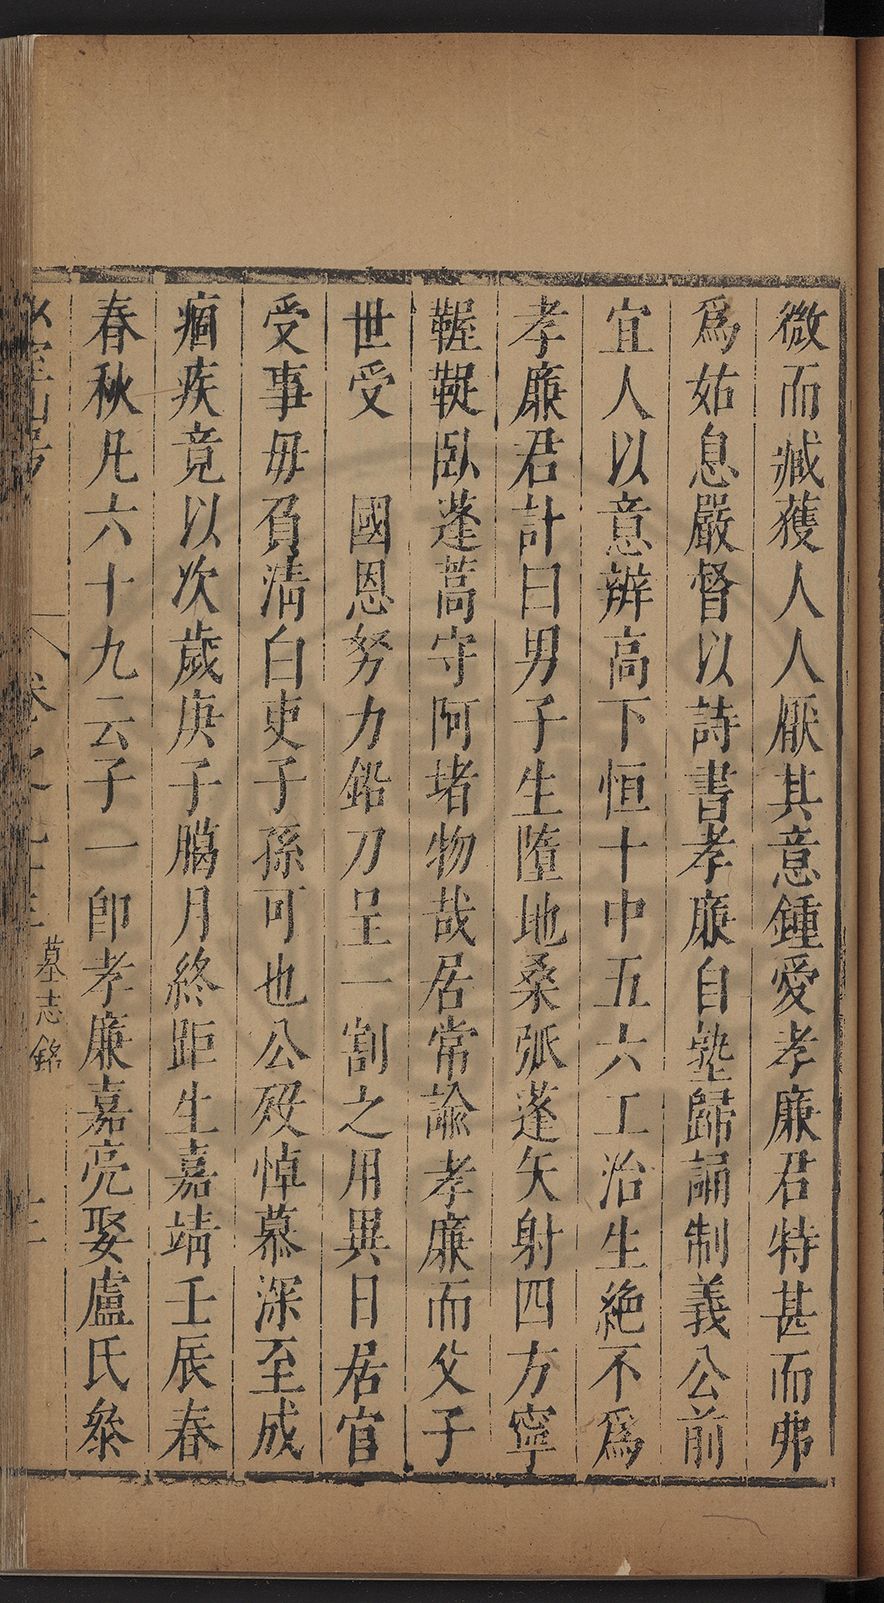 微而臧獲人人厭其意鍾愛孝廉君特甚而弗
爲姑息嚴督以詩書孝廉自塾歸誦制義公前
宜人以意辨高下恒十中五六工治生絶不爲
孝廉君計曰男子生墮地桑弧蓬矢射四方寧
齷齪臥蓬蒿守阿堵物哉居常諭孝廉而父子
世受　國恩努力鉛刀呈一割之用異日居官
受事毋負清白吏子孫可也公歿悼慕深至成
痼疾竟以次歲庚子臈月終距生嘉靖壬辰春
春秋凡六十九云子一卽孝廉嘉亮娶盧氏叅
墓志銘